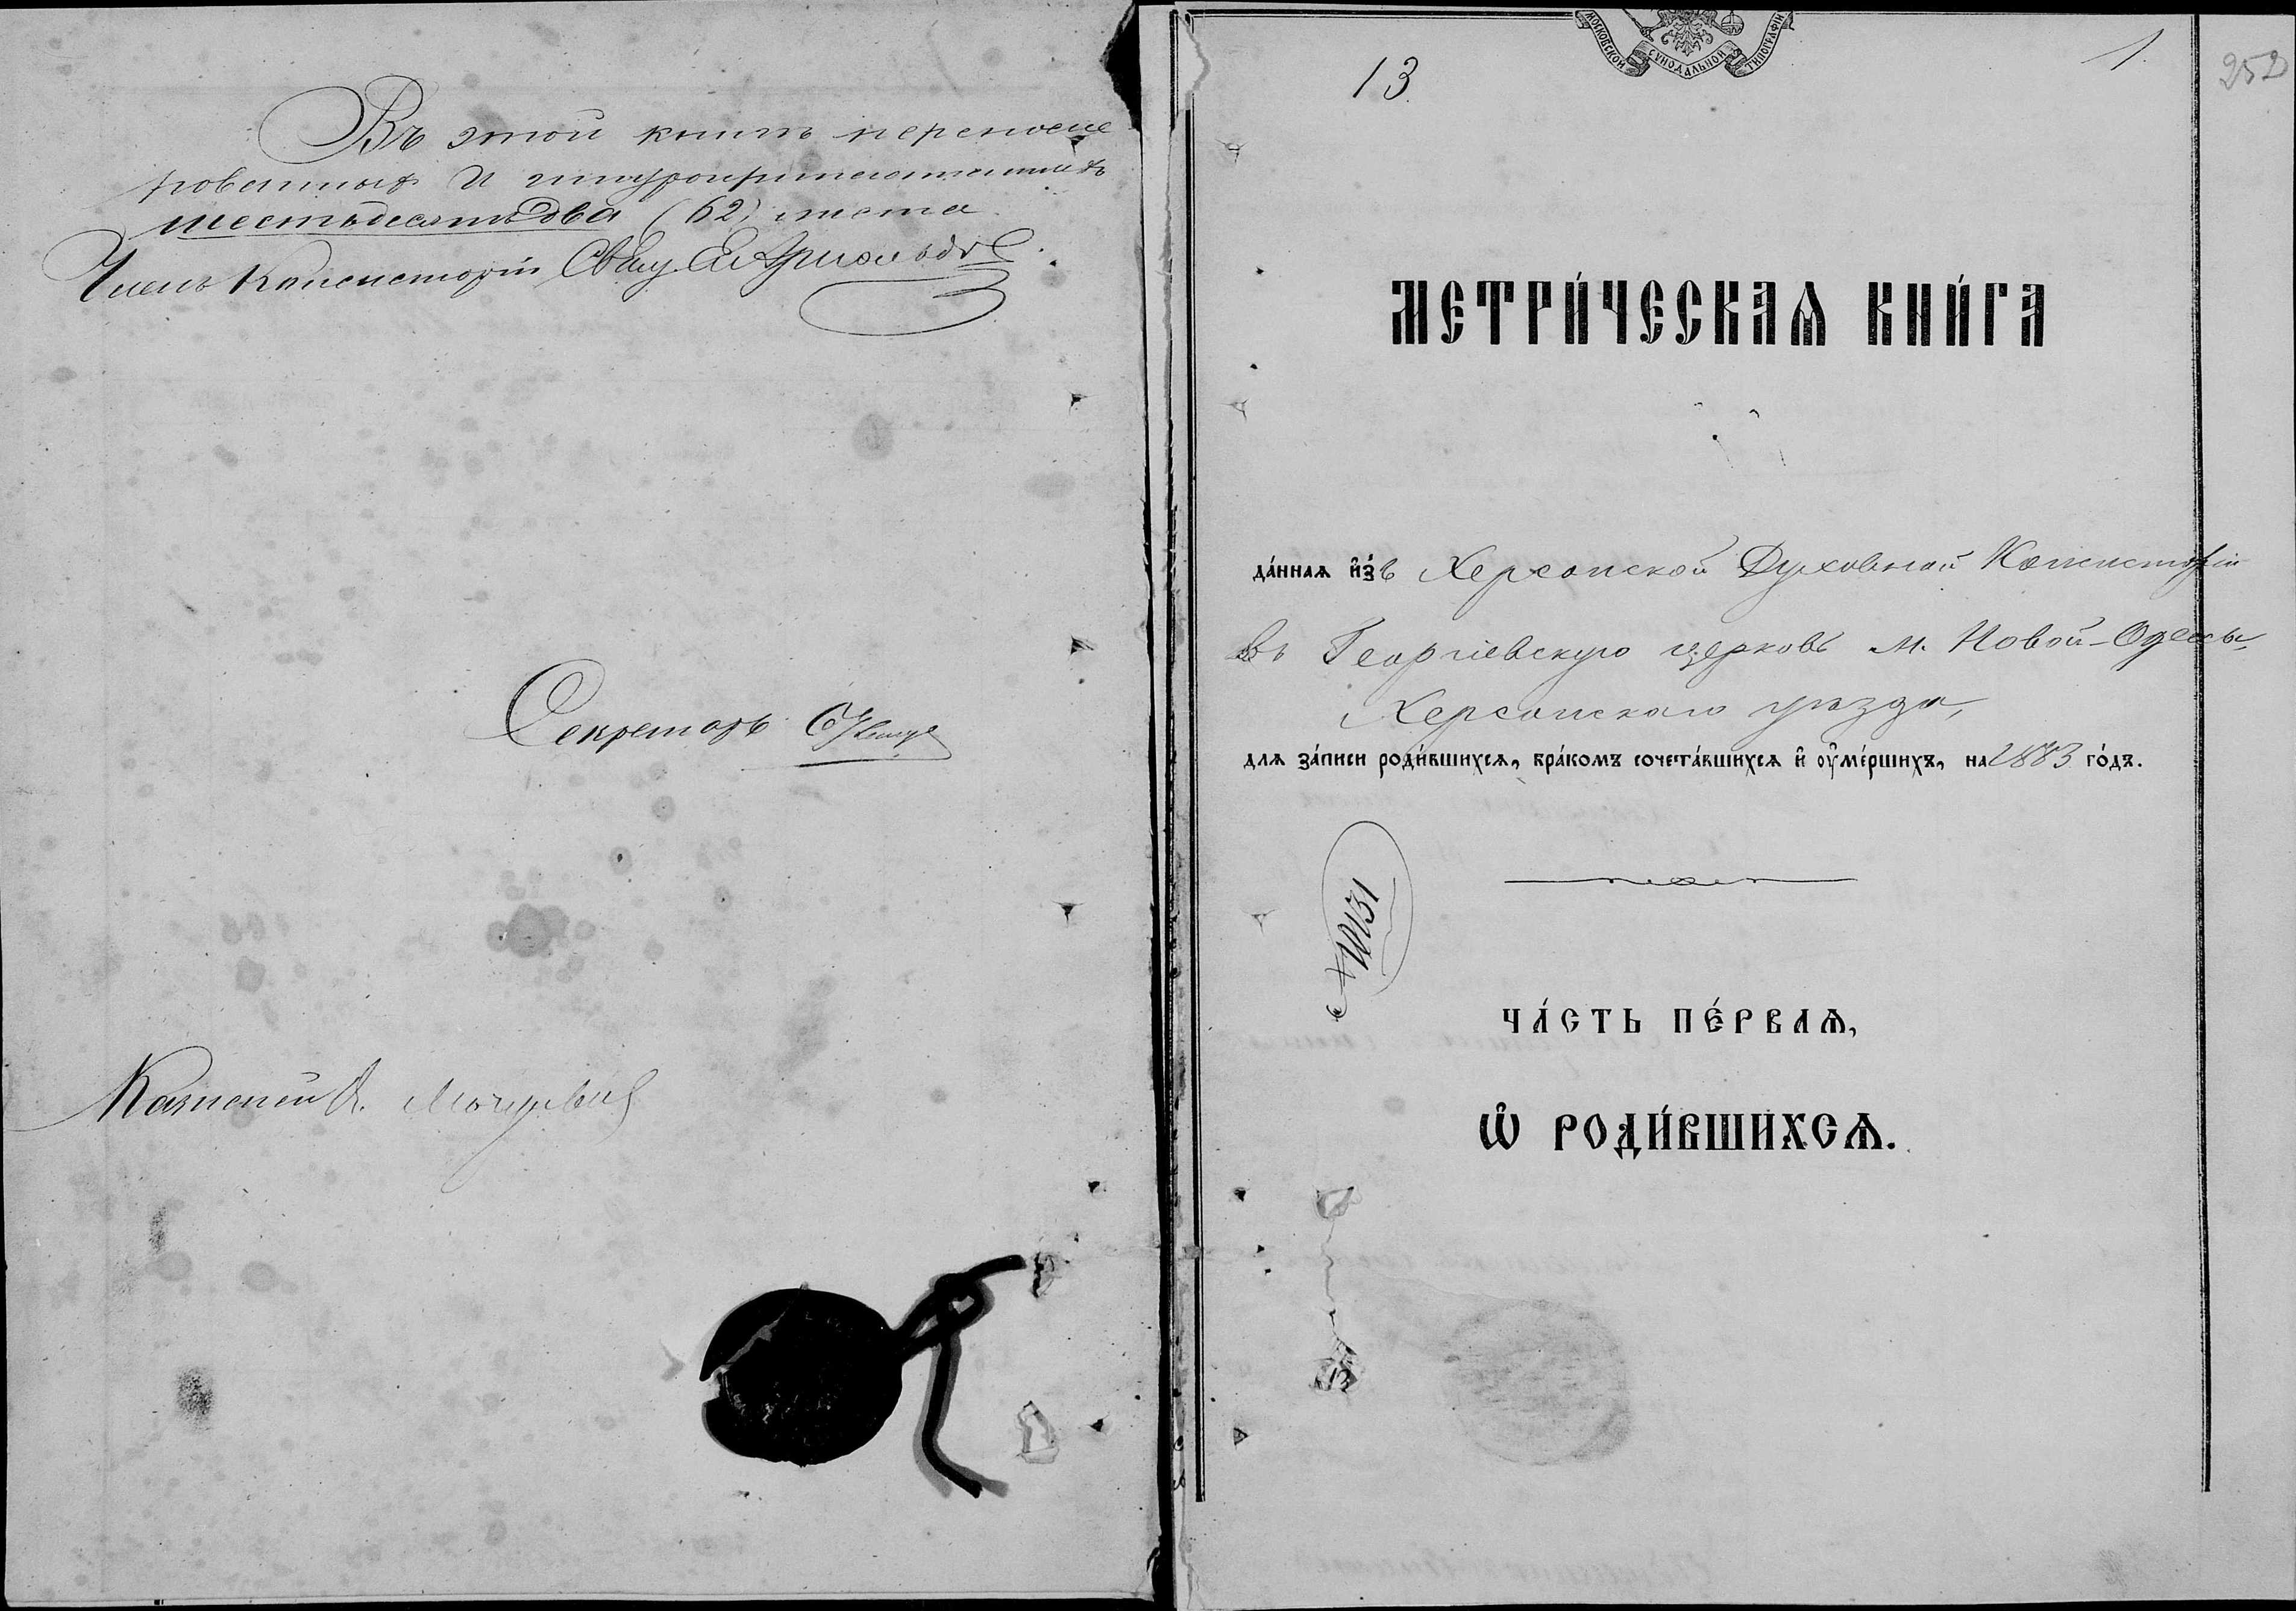 Въ этой книгѣ перенуме
рованныхъ и шнуроприпечатанныхъ
шестьдесятъ два (62) листа
Членъ Консисторіи Свящ.
Секретарь
Казначей
МОСКОВСКОЙ СѴНОДАЛЬНОЙ ТИПОГРАФІИ
13.
1.
252
МЕТРИ́ЧЕСКАѦ КНИ́ГА
да́ннаѧ и҆зъ Херсонской Духовной Консисторіи
въ Георгіевскую церковь м. Новой-Одессы,
Херсонскаго уѣзда,
длѧ за́писи роди́вшихсѧ, бра́комъ сочета́вшихсѧ и҆ ᲂу҆ме́ршихъ, на 1883 го́дъ.
№ 10131
ЧА́СТЬ ПЕ́РВАѦ,
Ѽ РОДИ́ВШИХСѦ.